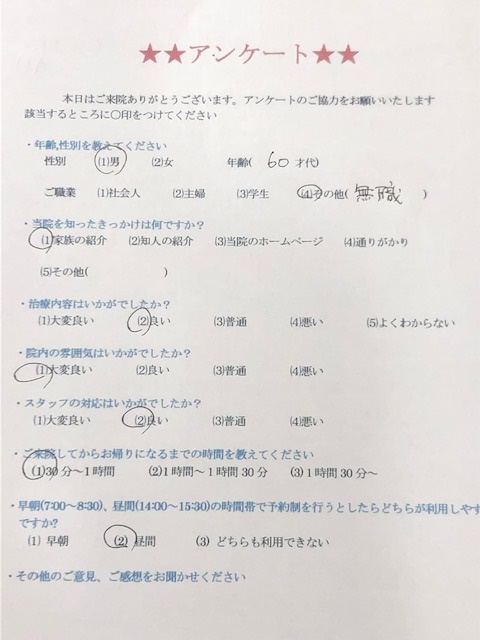 ★★アンケート★★
本日はご来院ありがとうございます。アンケートのご協力をお願いいたします
該当するところに〇印をつけてください
・年齢,性別を教えてください
性別 (1)男 (2)女 年齢( 60 才代)
ご職業 (1)社会人 (2)主婦 (3)学生 (4)その他( 無職 )
・当院を知ったきっかけは何ですか？
(1)家族の紹介 (2)知人の紹介 (3)当院のホームページ (4)通りがかり
(5)その他( )
・治療内容はいかがでしたか？
(1)大変良い (2)良い (3)普通 (4)悪い (5)よくわからない
・院内の雰囲気はいかがでしたか？
(1)大変良い (2)良い (3)普通 (4)悪い
・スタッフの対応はいかがでしたか？
(1)大変良い (2)良い (3)普通 (4)悪い
・ご来院してからお帰りになるまでの時間を教えてください
(1)30分～1時間 (2)1時間～1時間30分 (3)1時間30分～
・早朝(7:00～8:30)、昼間(14:00～15:30)の時間帯で予約制を行うとしたらどちらが利用しやす
ですか?
(1) 早朝 (2) 昼間 (3) どちらも利用できない
・その他のご意見、ご感想をお聞かせください